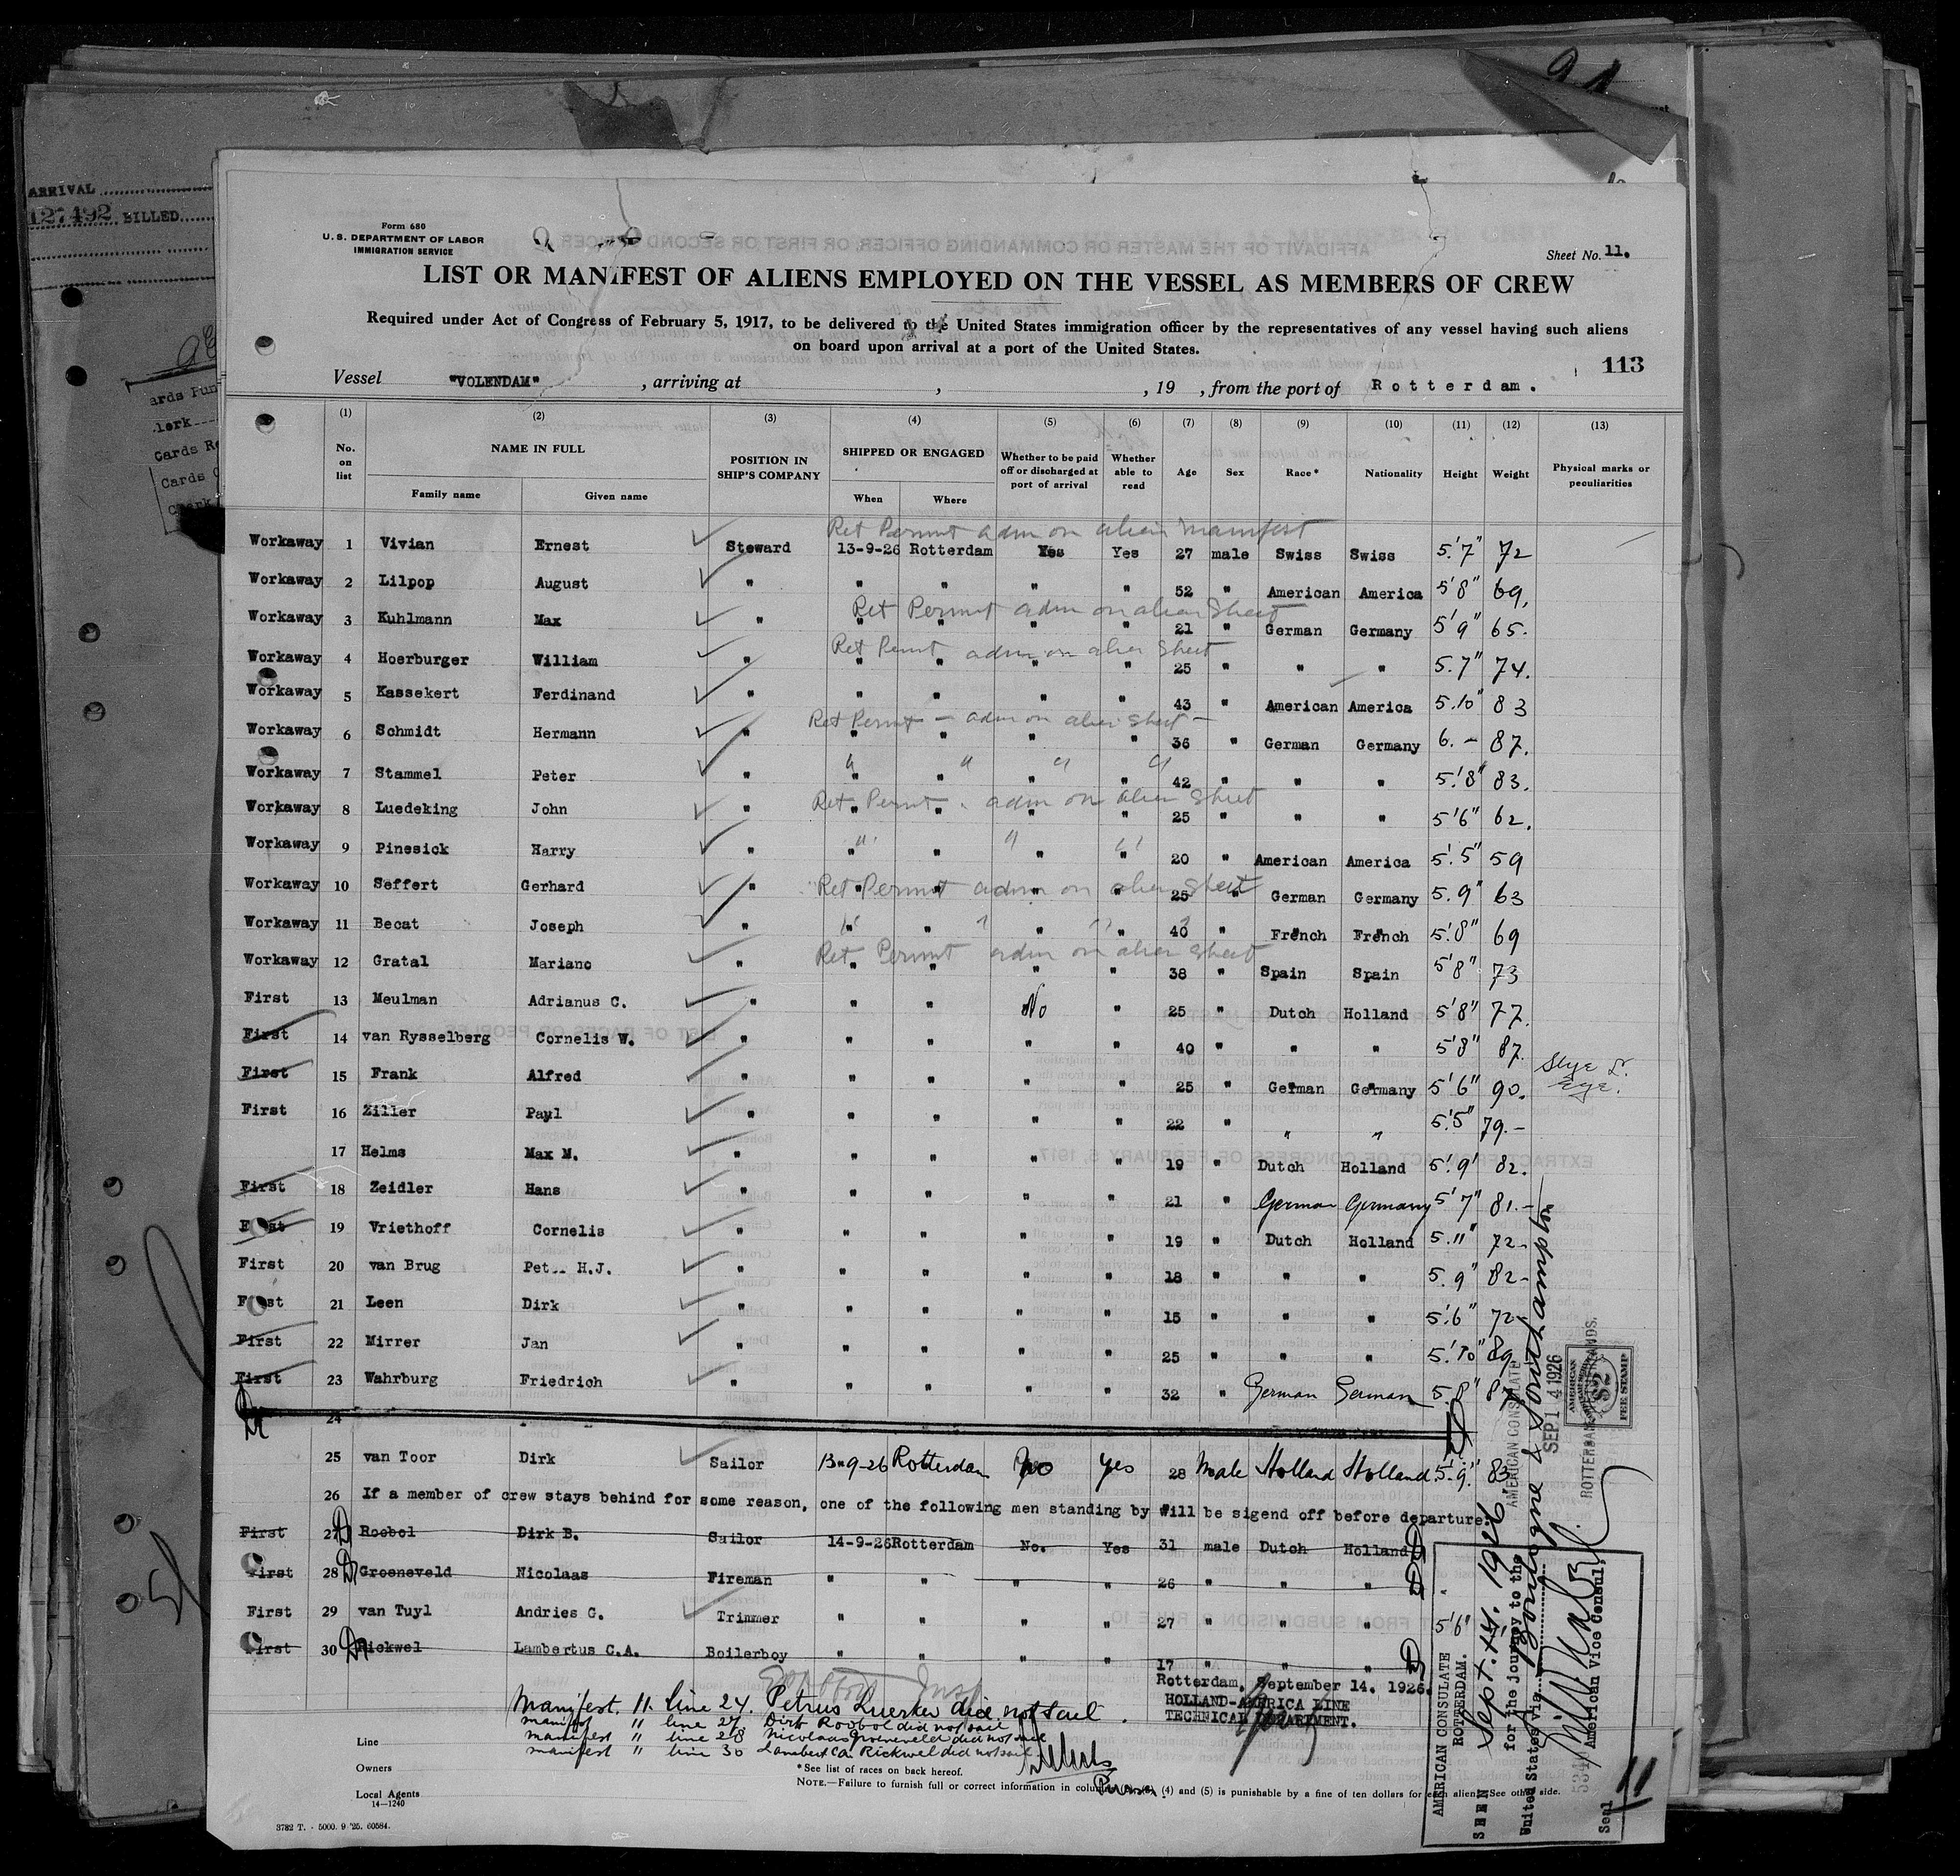 ARRIVAL
127492 BILLED
ards Pun
lerk
Cards Re
Cards
Form 680
U. S. DEPARTMENT OF LABOR
IMMIGRATION SERVICE
Sheet No. 11.
LIST OR MANIFEST OF ALIENS EMPLOYED ON THE VESSEL AS MEMBERS OF CREW
Required under Act of Congress of February 5, 1917, to be delivered to the United States immigration officer by the representatives of any vessel having such aliens
on board upon arrival at a port of the United States.
113
Vessel "VOLENDAM" , arriving at , , 19 , from the port of Rotterdam.
(1) (2) (3) (4) (5) (6) (7) (8) (9) (10) (11) (12) (13)
No. on list NAME IN FULL Family name Given name POSITION IN SHIP'S COMPANY SHIPPED OR ENGAGED When Where Whether to be paid off or discharged at port of arrival Whether able to read Age Sex Race* Nationality Height Weight Physical marks or peculiarities
Ret Permit adm on alien manifest
Workaway 1 Vivian Ernest Steward 13-9-26 Rotterdam Yes Yes 27 male Swiss Swiss 5'7" 72
Workaway 2 Lilpop August " " " " " 52 " American America 5'8" 69.
Ret Permit adm on alien Sheet
Workaway 3 Kuhlmann Max " " " " " 21 " German Germany 5'9" 65.
Ret Permit adm on alien Sheet
Workaway 4 Hoerburger William " " " " " 25 " " " 5.7" 74.
Workaway 5 Kassekert Ferdinand " " " " " 43 " American America 5.10" 83
Ret Permit - adm on alien sheet -
Workaway 6 Schmidt Hermann " " " " " 36 " German Germany 6.- 87.
" " " "
Workaway 7 Stammel Peter " " " " " 42 " " " 5.'8" 83.
Ret Permit - adm on alien sheet
Workaway 8 Luedeking John " " " " " 25 " " " 5'6" 62.
" " "
Workaway 9 Pinesick Harry " " " " " 20 " American America 5.'5" 59
Ret Permit adm on alien sheet
Workaway 10 Seffert Gerhard " " " " " 25 " German Germany 5.9" 63
Workaway 11 Becat Joseph " " " " " 40 " French French 5.'8" 69
Ret Permit adm on alien sheet
Workaway 12 Gratal Mariano " " " " " 38 " Spain Spain 5'8" 73
First 13 Meulman Adrianus C. " " " No " 25 " Dutch Holland 5'8" 77.
First 14 van Rysselberg Cornelis W. " " " " " 40 " " " 5'8" 87.
First 15 Frank Alfred " " " " " 25 " German Germany 5'6" 90. Stye L. Eye.
First 16 Ziller Paul " " " " " 22 " " " 5.'5" 79.-
17 Helms Max M. " " " " " 19 " Dutch Holland 5'9' 82.
First 18 Zeidler Hans " " " " " 21 " German Germany 5'7" 81.-
First 19 Vriethoff Cornelis " " " " " 19 " Dutch Holland 5.11" 72-
First 20 van Brug Peter H.J. " " " " " 18 " " " 5.9" 82-
First 21 Leen Dirk " " " " " 15 " " " 5.'6" 72
First 22 Mirrer Jan " " " " " 25 " " " 5.'10" 89
First 23 Wahrburg Friedrich " " " " " 32 " German German 5.8" 87
24
25 van Toor Dirk Sailor 13-9-26 Rotterdam No Yes 28 Male Holland Holland 5.9" 83
26 If a member of crew stays behind for some reason, one of the following men standing by Will be sigend off before departure:
First 27 Roebol Dirk B. Sailor 14-9-26 Rotterdam No. Yes 31 male Dutch Holland
First 28 Groeneveld Nicolaas Fireman " " " " 26 " " "
First 29 van Tuyl Andries G. Trimmer " " " " 27 " " " 5'6"
First 30 Rickwel Lambertus C.A. Boilerboy " " " " 17 " " "
Rotterdam, September 14. 1926.
HOLLAND-AMERICA LINE
TECHNICAL DEPARTMENT.
Manifest. 11. line 24. Petrus Luerker did not sail.
manifest 11 line 27 Dirk Roobol did not sail
manifest 11 line 28 Nicolaas Groeneveld did not sail
manifest 11 line 30 Lambert Ca Rickwel did not sail
Line
Owners
Local Agents
14-1240
*See list of races on back hereof.
NOTE.—Failure to furnish full or correct information in columns (2), (3), (4) and (5) is punishable by a fine of ten dollars for each alien. See other side.
3782 T. - 5000. 9 '25. 60584.
AMERICAN CONSULATE
ROTTERDAM.
SEEN Sept. 14. 1926
for the journey to the
United States via Boulogne & Southampton
American Vice Consul
Seal
11
AMERICAN CONSULATE
SEP 14 1926
ROTTERDAM, NETHERLANDS.
AMERICAN
$2
FEE STAMP